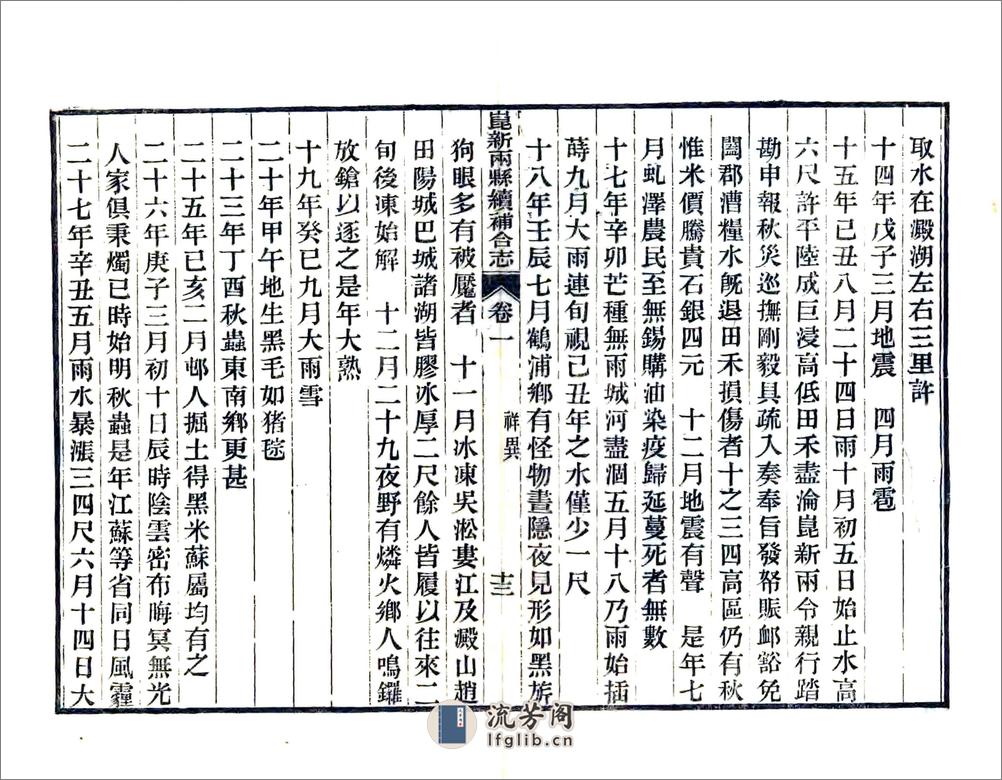 取水在澱湖左右三里許
十四年戊子三月地震　四月雨雹
十五年己丑八月二十四日雨十月初五日始止水高
六尺許平陸成巨浸高低田禾盡淪崑新兩令親行踏
勘申報秋災巡撫剛毅具疏入奏奉旨發帑賑卹豁免
闔郡漕糧水旣退田禾損傷者十之三四高區仍有秋
惟米價騰貴石銀四元　十二月地震有聲　是年七
月虬澤農民至無錫購油染疫歸延蔓死者無數
十七年辛卯芒種無雨城河盡涸五月十八乃雨始插
蒔九月大雨連旬視己丑年之水僅少一尺
十八年壬辰七月鶴浦鄉有怪物晝隱夜見形如黑旂
崑新兩縣續補合志　卷一　祥異　十三
狗眼多有被魘者　十一月冰凍吳淞婁江及澱山趙
田陽城巴城諸湖皆膠冰厚二尺餘人皆履以往來二
旬後凍始解　十二月二十九夜野有燐火鄉人鳴鑼
放鎗以逐之是年大熟
十九年癸巳九月大雨雪
二十年甲午地生黑毛如猪毧
二十三年丁酉秋蟲東南鄉更甚
二十五年己亥二月邨人掘土得黑米蘇屬均有之
二十六年庚子三月初十日辰時陰雲密布晦冥無光
人家俱秉燭巳時始明秋蟲是年江蘇等省同日風霾
二十七年辛丑五月雨水暴漲三四尺六月十四日大
流芳阁
lfglib.cn